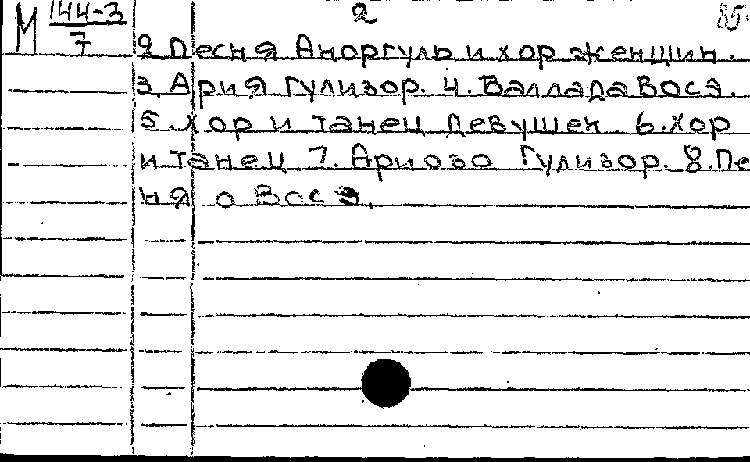 М 144-3/7
2
2 Песня Аноргуль и хор женщин.
3. Ария Гулизор. 4. Баллада Восэ.
5. Хор и танец девушек. 6. Хор
и танец 7. Ариозо Гулизор. 8. Пе
ня о Восэ.